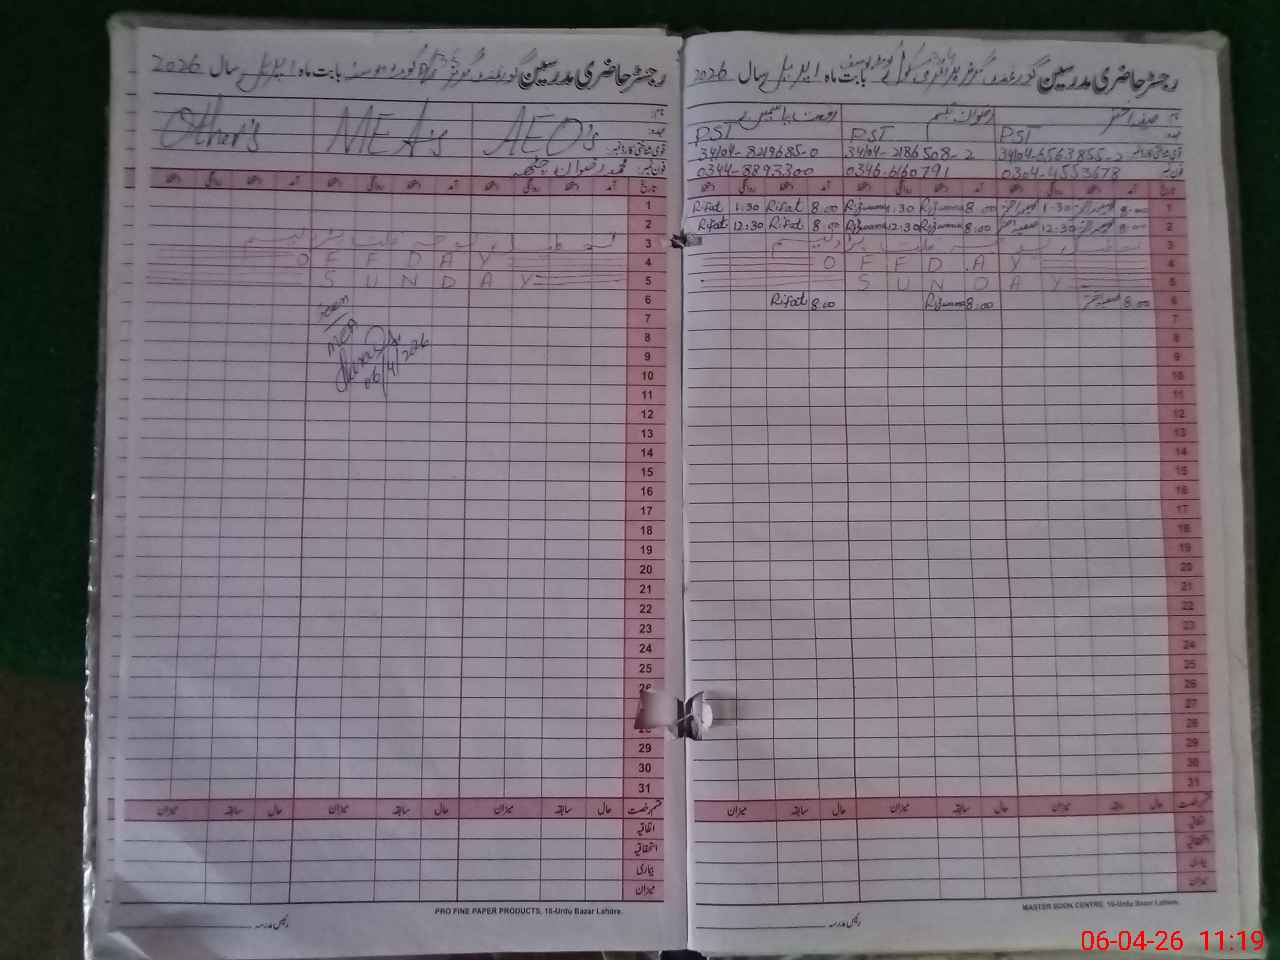 رجسٹر حاضری مدرسین گورنمنٹ گرلز پرائمری سکول بابت ماہ اپریل سال 2026
نام
عہدہ
Other's MEA's AEO's
قومی شناختی کارڈ نمبر
فون نمبر محمد رضوان چٹھہ
تاریخ آمد دستخط روانگی دستخط آمد دستخط روانگی دستخط آمد دستخط روانگی دستخط
1
2
3
4 O F F D A Y
5 S U N D A Y
6 Seen
7
8 MEA
9
10 06/4/2026
11
12
13
14
15
16
17
18
19
20
21
22
23
24
25
26
28
29
30
31
قسم رخصت حال سابقہ میزان حال سابقہ میزان حال سابقہ میزان
اتفاقیہ
استحقاقیہ
بیماری
میزان
PRO FINE PAPER PRODUCTS, 16-Urdu Bazar Lahore.
رئیس مدرسہ
رجسٹر حاضری مدرسین گورنمنٹ گرلز پرائمری سکول بابت ماہ اپریل سال 2026
نام رضوانہ رفعت یاسمین
عہدہ PST PST PST
34104-8219685-0 34104-2186508-2 34104-6563855-2
0344-8893300 0346-6160791 0304-4553678
تاریخ آمد دستخط روانگی دستخط آمد دستخط روانگی دستخط آمد دستخط روانگی دستخط
Rifat 1:30 Rifat 8:00 Rizwana 1:30 Rizwana 8:00 1:30 8:00 1
Rifat 12:30 Rifat 8:00 Rizwana 12:30 Rizwana 8:00 12:30 8:00 2
3
O F F D A Y 4
S U N D A Y 5
Rifat 8:00 Rizwana 8:00 8:00 6
7
8
9
10
11
12
13
14
15
16
17
18
19
20
21
22
23
24
25
26
27
28
29
30
31
قسم رخصت حال سابقہ میزان حال سابقہ میزان حال سابقہ میزان
اتفاقیہ
استحقاقیہ
بیماری
میزان
MASTER BOOK CENTRE, 16-Urdu Bazar Lahore.
رئیس مدرسہ
06-04-26 11:19